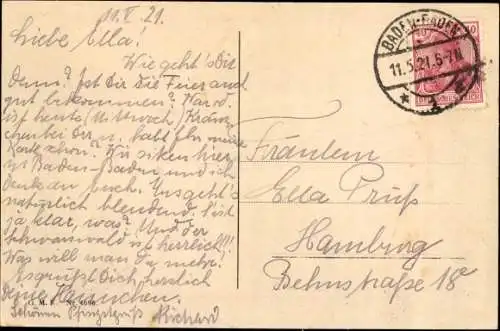 11.V.21.
Liebe Ella!
Wie geht's Dir
denn? Ist Dir die Feier auch
gut bekommen?
ist heute (Mittwoch)
bei Dir u. habt Ihr meine
Karte schon? Wir sitzen hier
in Baden-Baden und ich
denk an Euch. Uns geht's
natürlich blendend. Ist
ja klar, was? Und der
Schwarzwald ist herrlich!!!
Was will man da mehr!
Es grüßt Dich herzlich
Deine
Schönen Pfingstgruß Richard
G. M. K.
BADEN-BADEN
11.5.21. 6-7N.
Fräulein
Ella Prüß
Hamburg
Behnstraße 18